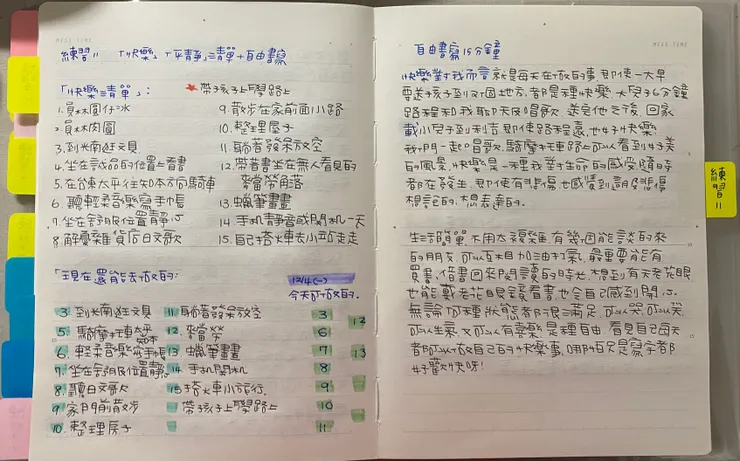 練習11 「快樂」、「平靜」清單+自由書寫
「快樂清單」:
★帶孩子上學路上
1.員林圓仔冰
2.員林肉圓
3.到光南逛文具
4.坐在誠品的位置上看書
5.在台東太平往知本方向騎車
6.聽輕柔音樂寫手帳
7.坐在舒服位置靜心
8.解憂雜貨店日文歌
9.散步在家前面小路
10.整理屋子
11.躺著發呆放空
12.帶著書坐在無人看見的
麥當勞角落
13.蠟筆畫畫
14.手机靜音或關机一天
15.自己搭火車去小站走走
「現在還能去做的:
12/4(一)
今天可以做的.
3.到光南逛文具
5.騎車
6.輕柔音樂寫手帳
7.坐在舒服位置靜心
8.聽日文歌
9.家門前散步
10.整理房子
11.躺著發呆放空
12.麥當勞
13.蠟筆畫畫
14.手机關机
15.搭火車小旅行.
帶孩子上學路上
3
6
7
8
9
10
11
12
13
自由書寫15分鐘
快樂對我而言就是每天在做的事,即使一大早
要送孩子到不同地方,都是種快樂,大兒子6分鐘
路程和我聊天及唱歌,送完他之後,回家
載小兒子到,即使路程遠,也好快樂
我們一起唱歌,騎摩托車路上可以看到好美
的風景,快樂是一種我對生命的感受,隨時
都在發生,即使有悲傷也感覺到這股悲傷
想說的,想表達的.
生活簡單,不用太複雜,有幾個能談的來
的朋友,可以互相加油打氣,最重要能有
買書,借書回來閱讀的時光,想到有天老花眼
也能戴老花眼鏡看書也令自己感到開心.
無論何種狀態都很滿足,可以哭,可以笑,
可以生氣,又可以有喜樂,是種自由,看見自己每天
都可以做自己的快樂事,哪怕只是寫字都
好歡快呀!
練習11